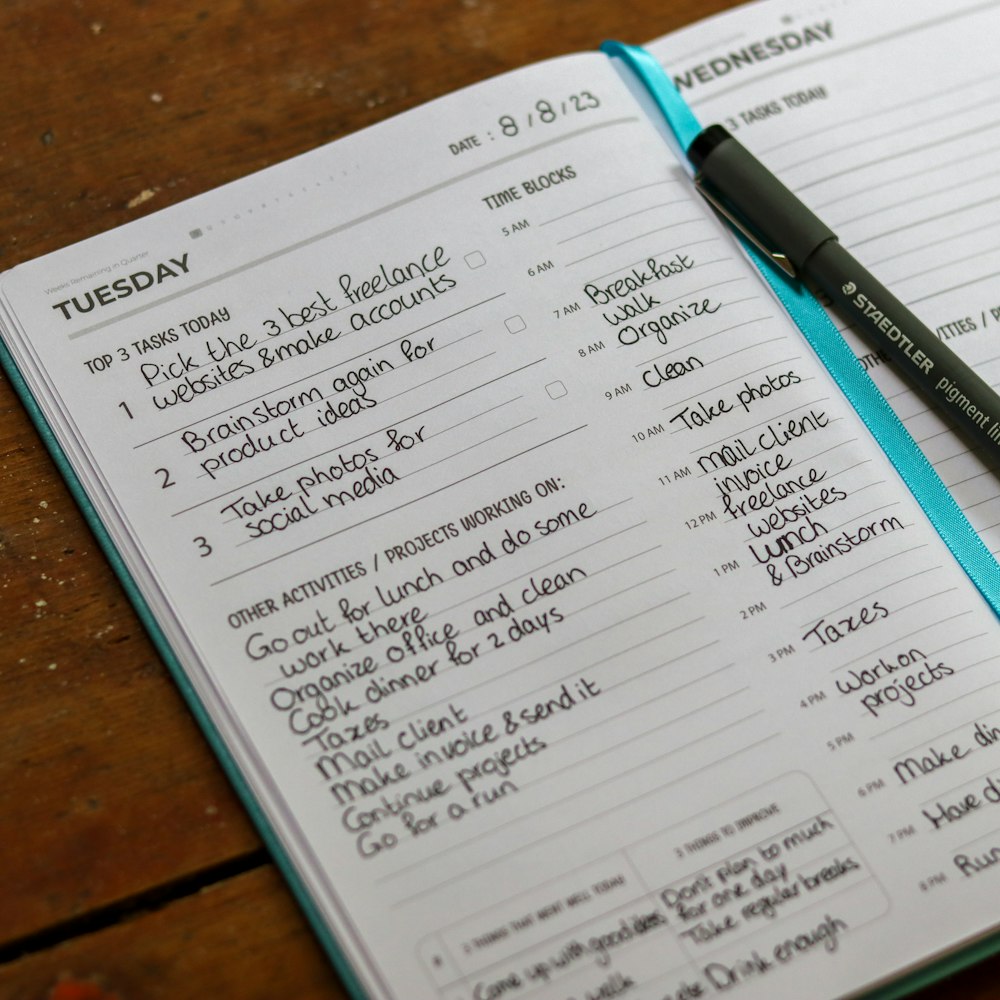 Weeks Remaining in Quarter
TUESDAY
DATE : 8/8/23
TOP 3 TASKS TODAY
1 Pick the 3 best freelance
websites & make accounts
2 Brainstorm again for
product ideas
3 Take photos for
social media
OTHER ACTIVITIES / PROJECTS WORKING ON:
Go out for lunch and do some
work there
Organize office and clean
Cook dinner for 2 days
Taxes
Mail client
Make invoice & send it
Continue projects
Go for a run
TIME BLOCKS
5 AM
6 AM
7 AM Breakfast
walk
8 AM Organize
9 AM Clean
10 AM Take photos
11 AM mail client
invoice
12 PM freelance
websites
1 PM lunch
& Brainstorm
2 PM
3 PM Taxes
4 PM work on
projects
5 PM
6 PM Make din
7 PM Have di
8 PM Run
3 THINGS THAT WENT WELL TODAY
Came up with good ideas
walk
3 THINGS TO IMPROVE
Don't plan to much
for one day
Take regular breaks
Drink enough
WEDNESDAY
3 TASKS TODAY
OTH
VITIES / P
STAEDTLER
pigment lin